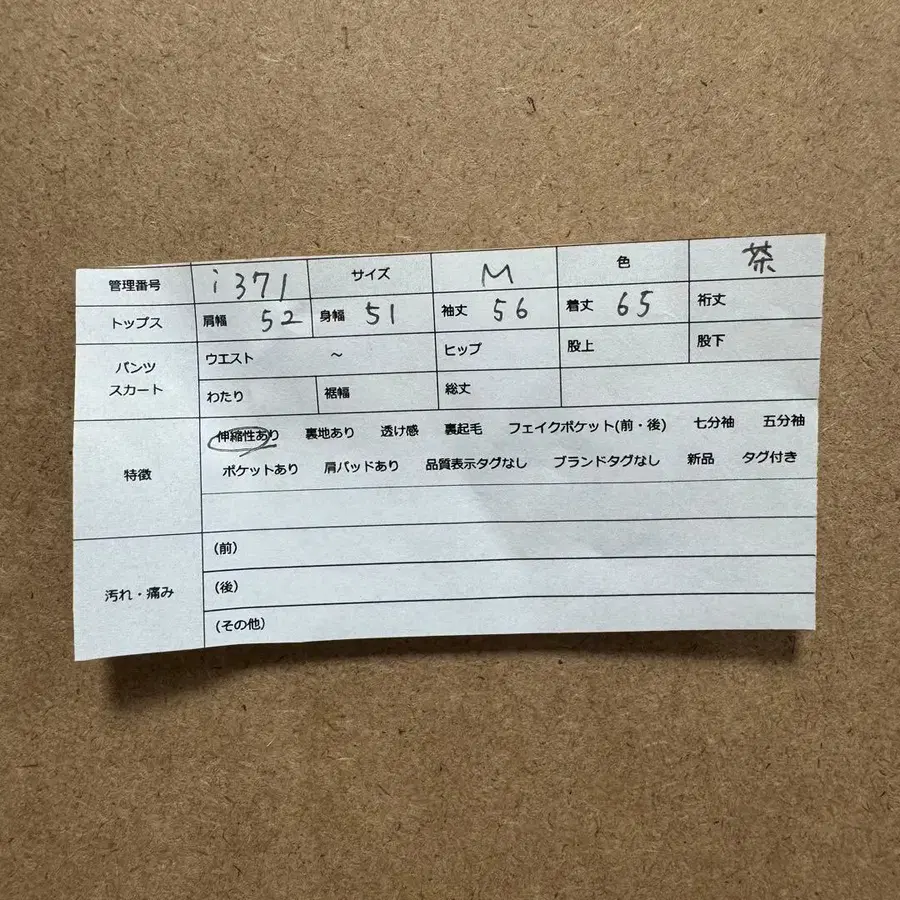 管理番号 i371 サイズ M 色 茶
トップス 肩幅 52 身幅 51 袖丈 56 着丈 65 裄丈
パンツ スカート
ウエスト ～ ヒップ 股上 股下
わたり 裾幅 総丈
特徴
伸縮性あり 裏地あり 透け感 裏起毛 フェイクポケット(前・後) 七分袖 五分袖
ポケットあり 肩パッドあり 品質表示タグなし ブランドタグなし 新品 タグ付き
汚れ・痛み
(前)
(後)
(その他)